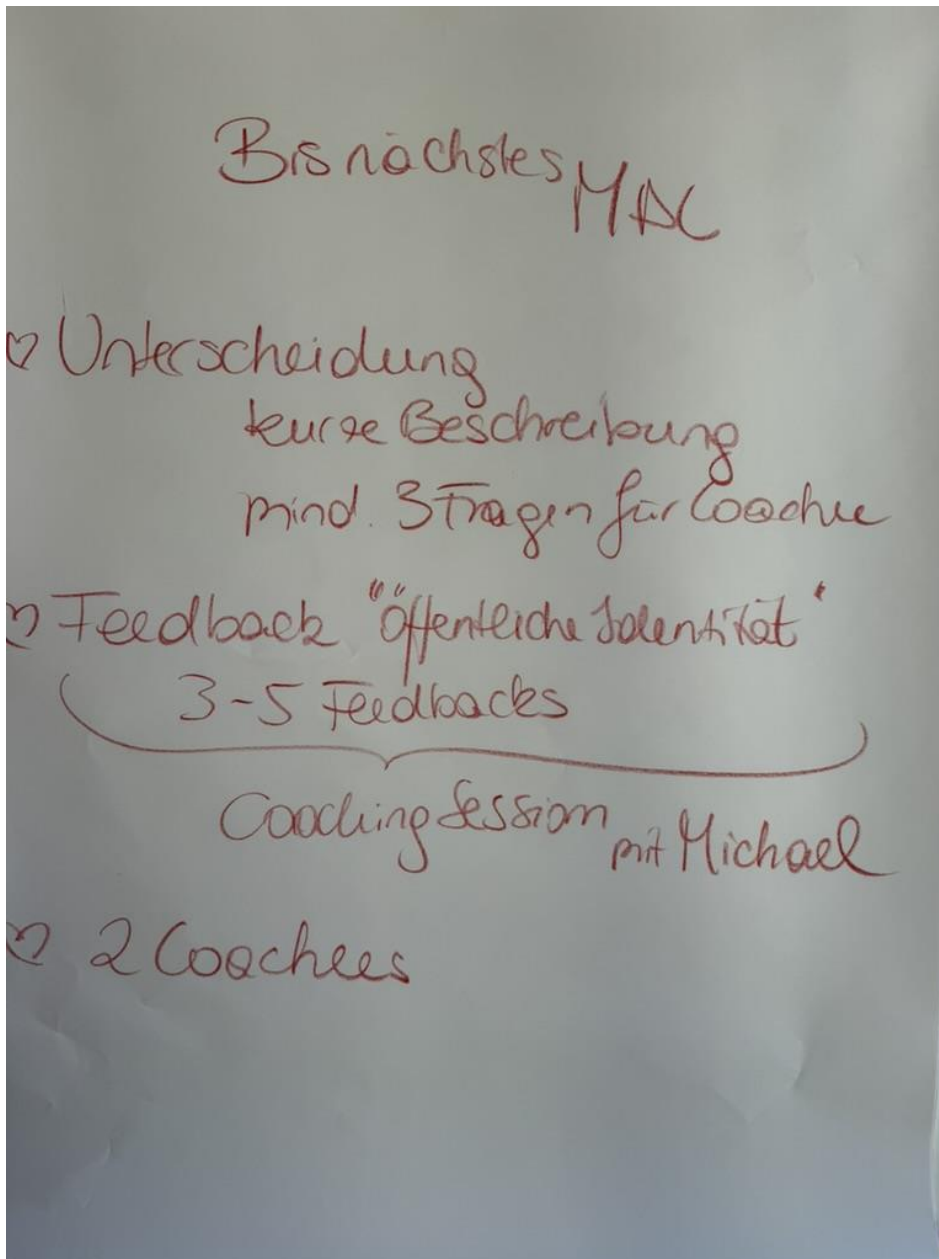 Bis nächstes MAL
Unterscheidung
kurze Beschreibung
mind. 3 Fragen für Coachee
Feedback "öffentliche Identität"
3-5 Feedbacks
Coaching Session mit Michael
2 Coachees